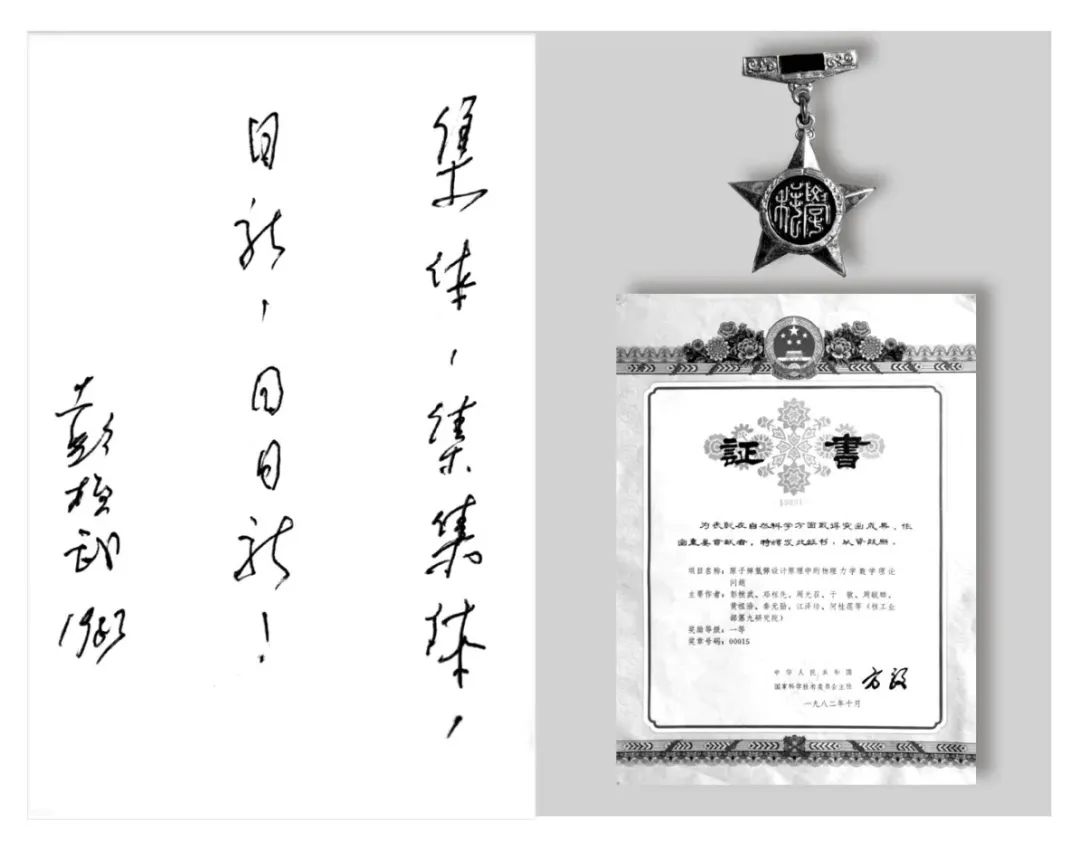 集体，集集体，
日新，日日新！
彭桓武
証書
为表彰在自然科学方面取得突出成果、作
出重要贡献者，特颁发此证书，以资鼓励。
项目名称：原子弹氢弹设计原理中的物理力学数学理论
问题
主要作者：彭桓武、邓稼先、周光召、于 敏、周毓麟、
黄祖洽、秦元勋、江泽培、何桂莲等（核工业
部第九研究院）
奖励等级：一等
奖章号码：00015
中华人民共和国
国家科学技术委员会主任 方毅
一九八二年十月